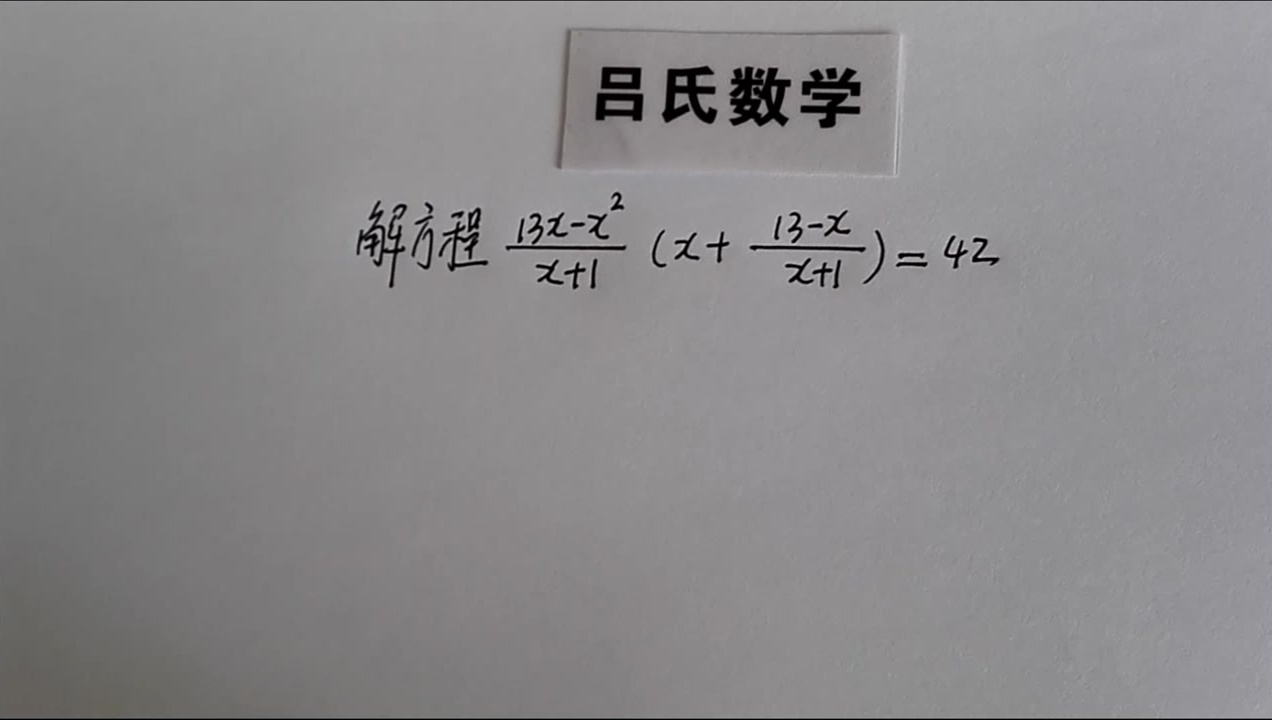 吕氏数学
解方程 \frac{13x-x^2}{x+1} (x+\frac{13-x}{x+1})=42